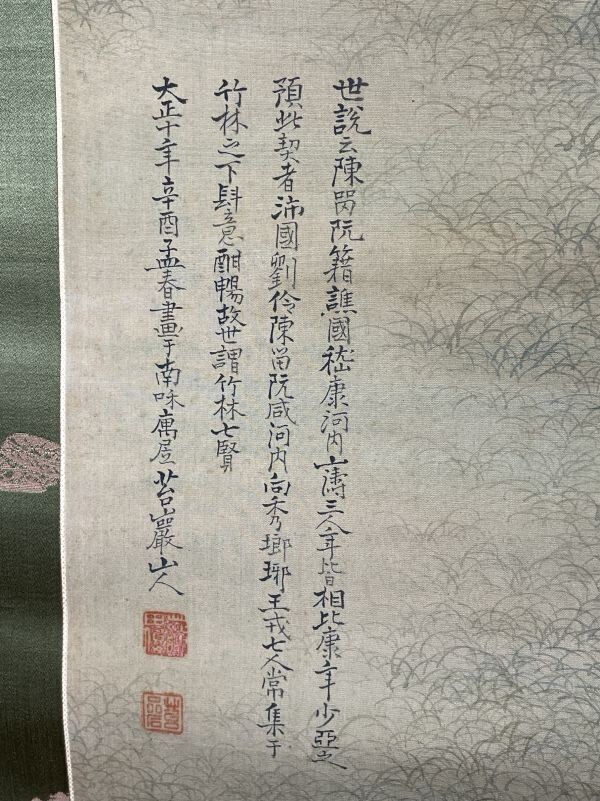 世說云陳留阮籍譙國嵇康河內山濤三人年皆相比康年少亞之
預此契者沛國劉伶陳留阮咸河內向秀瑯琊王戎七人常集于
竹林之下肆意酣暢故世謂竹林七賢
大正十年辛酉孟春畫于南咊寓居苔巖山人